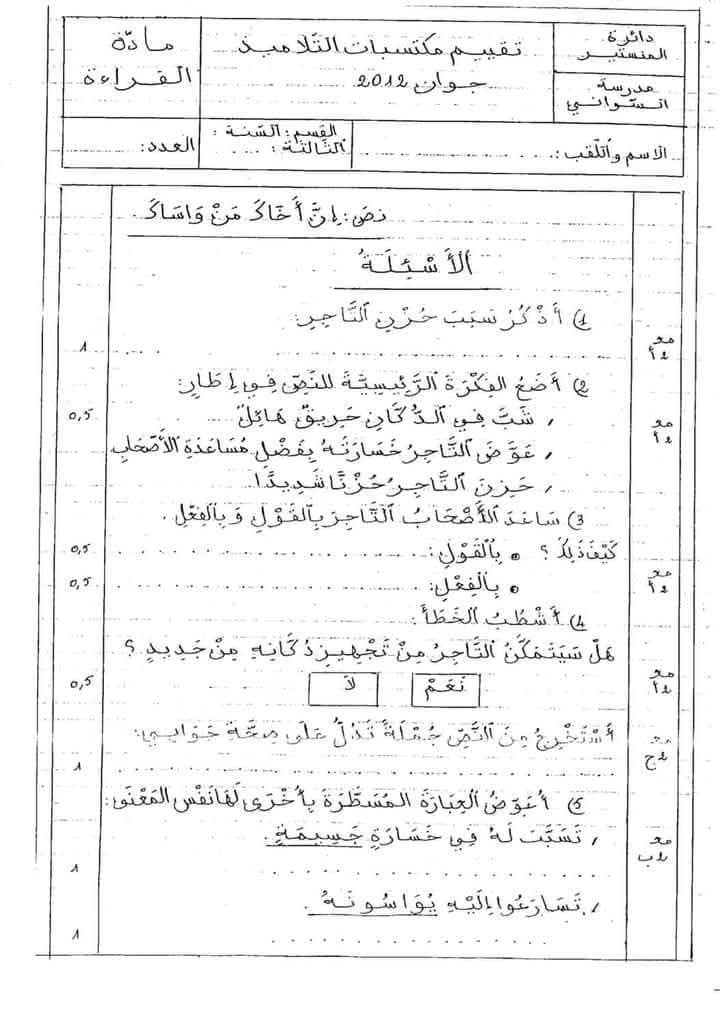 دائرة
المنستير
تقييم مكتسبات التلاميذ
جوان 2012
مادّة
القراءة
مدرسة
السّواني
الاسم واللّقب :
القسم : السّنة :
الثّالثة :
العدد:
نص : إِنَّ أَخَاكَ مَنْ وَاسَاكَ.
الأَسْئِلَةُ
1) أَذْكُرُ سَبَبَ حُزْنِ التَّاجِرِ:
مع 2أ
1
2) أَضَعُ الفِكْرَةَ الرَّئِيسِيَّةَ للنَصِّ فِي إِطَارٍ:
, شَبَّ فِي الدُّكَّانِ حَرِيقٌ هَائِلٌ
مع 2أ
0,5
, عَوَّضَ التَّاجِرُ خَسَارَتَهُ بِفَضْلِ مُسَاعَدَةِ الأَصْحَابِ
, حَزِنَ التَّاجِرُ حُزْنًا شَدِيدًا.
3) سَاعَدَ الأَصْحَابُ التَّاجِرَ بِالقَوْلِ وَبِالفِعْلِ.
كَيْفَ ذَلِكَ ؟ • بِالقَوْلِ :
0,5
• بِالْفِعْلِ :
مع 2أ
0,5
4) أَشْطُبُ الخَطَأَ :
هَلْ سَيَتَمَكَّنُ التَّاجِرُ مِنْ تَجْهِيزِ دُكَّانِهِ مِنْ جَدِيدٍ ؟
نَعَمْ
لَا
مع 2أ
0,5
أَسْتَخْرِجُ مِنَ النَّصِّ جُمْلَةً تَدُلُّ عَلَى صِحَّةِ جَوَابِي:
مع 2ج
1
5) أُعَوِّضُ العِبَارَةَ المُسَطَّرَةَ بِأُخْرَى لَهَا نَفْسُ المَعْنَى :
, تَسَبَّبَ لَهُ فِي خَسَارَةٍ جَسِيمَةٍ .
مع 1ب
1
, تَسَارَعُوا إِلَيْهِ يُوَاسُونَهُ .
1